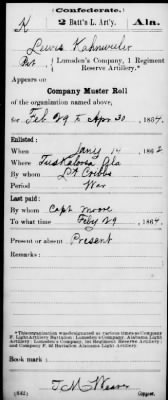 (Confederate.)
K 2 Batt'l L. Art'y. Ala.
Lewis Kahnweiler
Pvt., Lumsden's Company, 1 Regiment
Reserve Artillery.*
Appears on
Company Muster Roll
of the organization named above,
for Feb 29 to Apr 30, 1864.
Enlisted:
When Jany 14, 1862
Where Tuskaloosa Ala
By whom Lt Cribbs
Period War
Last paid:
By whom Capt. Moore
To what time Feby 29, 1864.
Present or absent Present
Remarks:
*This organization was designated at various times as Company
F. Light Artillery Battalion; Lumsden's Company, Alabama Light
Artillery; Lumsden's Company, 1st Regiment Reserve Artillery;
and Company F, 2d Battalion Alabama Light Artillery.
Book mark:
(642) Copyist.